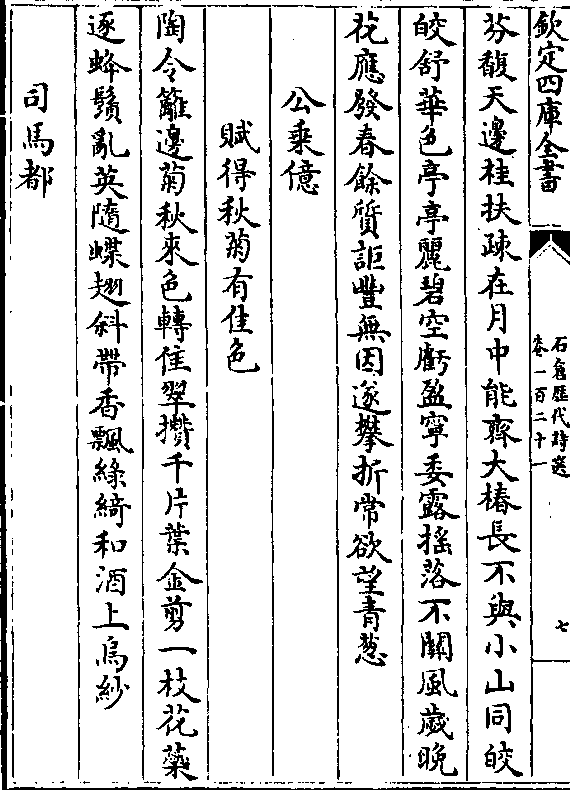 欽定四庫全書
石倉歷代詩選
卷一百二十一
七
芬馥天邊桂扶疎在月中能齊大椿長不與小山同皎
皎舒華色亭亭麗碧空虧盈寧委露揺落不闗風歲晚
花應發春餘質詎豐無因遂攀折常欲望青葱
公乘億
賦得秋菊有佳色
陶令籬邊菊秋來色轉佳翠攢千片葉金剪一枝花蘂
逐蜂鬚亂英隨蝶翅斜帶香飄緑綺和酒上烏紗
司馬都